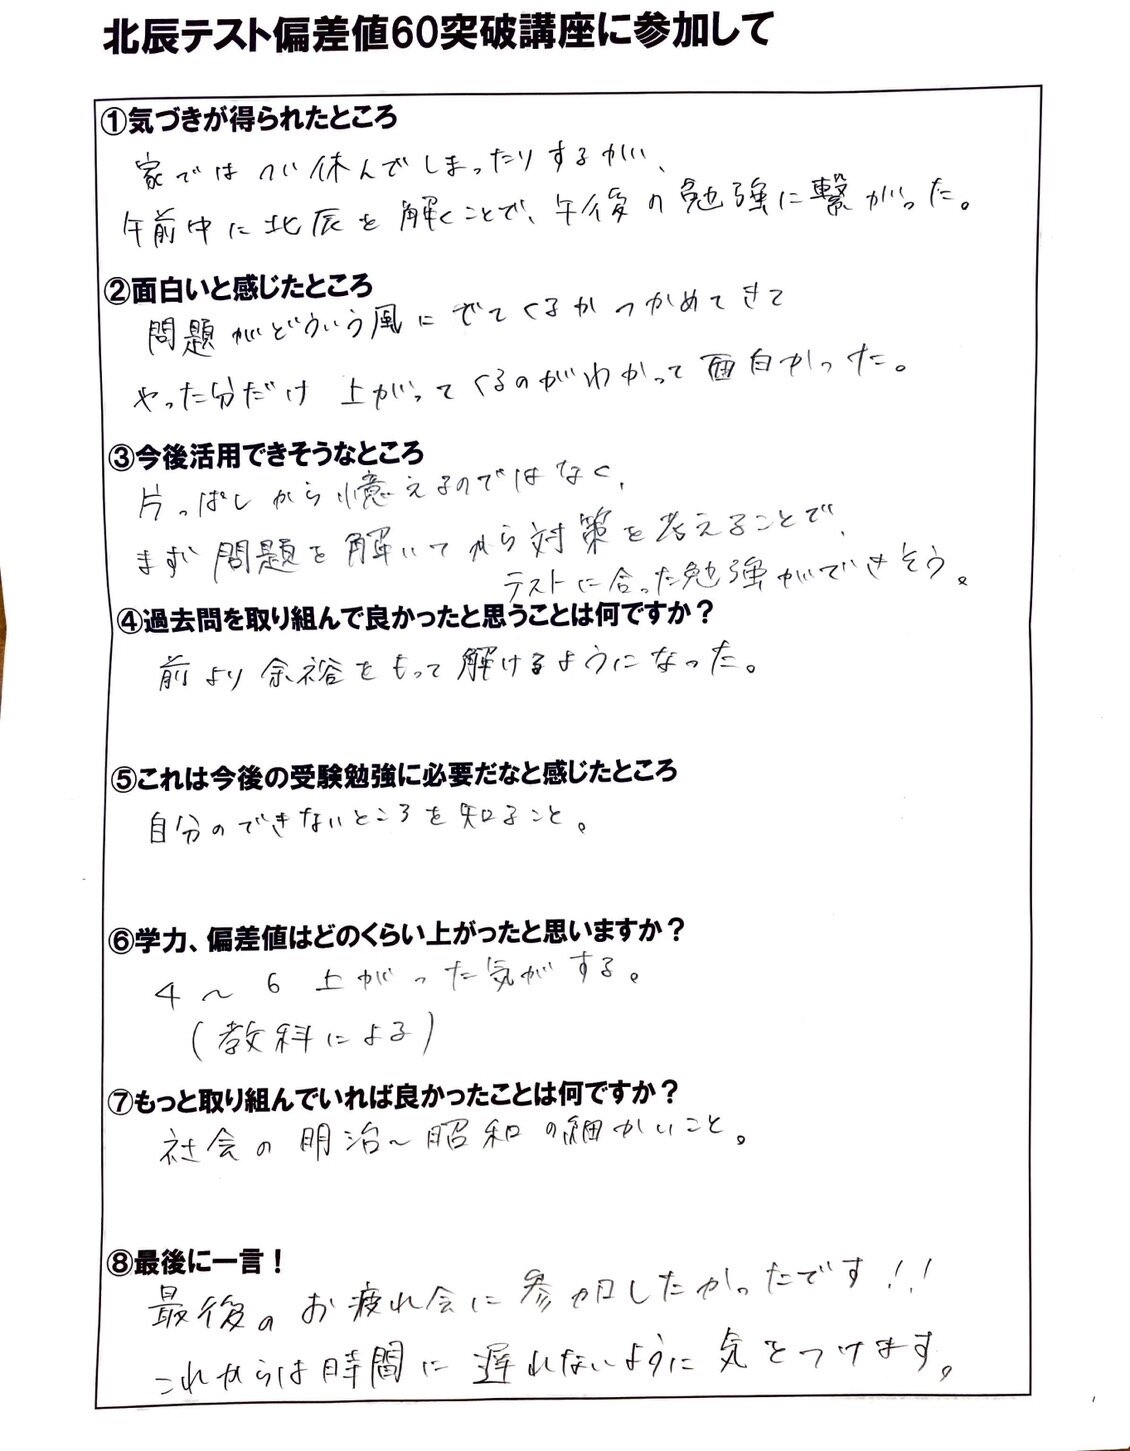 北辰テスト偏差値60突破講座に参加して
①気づきが得られたところ
家ではつい休んでしまったりするが、
午前中に北辰を解くことで、午後の勉強に繋がった。
②面白いと感じたところ
問題がどういう風にでてくるかつかめてきて
やった分だけ上がってくるのがわかって面白かった。
③今後活用できそうなところ
片っぱしから憶えるのではなく、
まず問題を解いてから対策を考えることで、
テストに合った勉強ができそう。
④過去問を取り組んで良かったと思うことは何ですか？
前より余裕をもって解けるようになった。
⑤これは今後の受験勉強に必要だなと感じたところ
自分のできないところを知ること。
⑥学力、偏差値はどのくらい上がったと思いますか？
4～6 上がった気がする。
(教科による)
⑦もっと取り組んでいれば良かったことは何ですか？
社会の明治～昭和の細かいこと。
⑧最後に一言！
最後のお疲れ会に参加したかったです!!
これからは時間に遅れないように気をつけます。